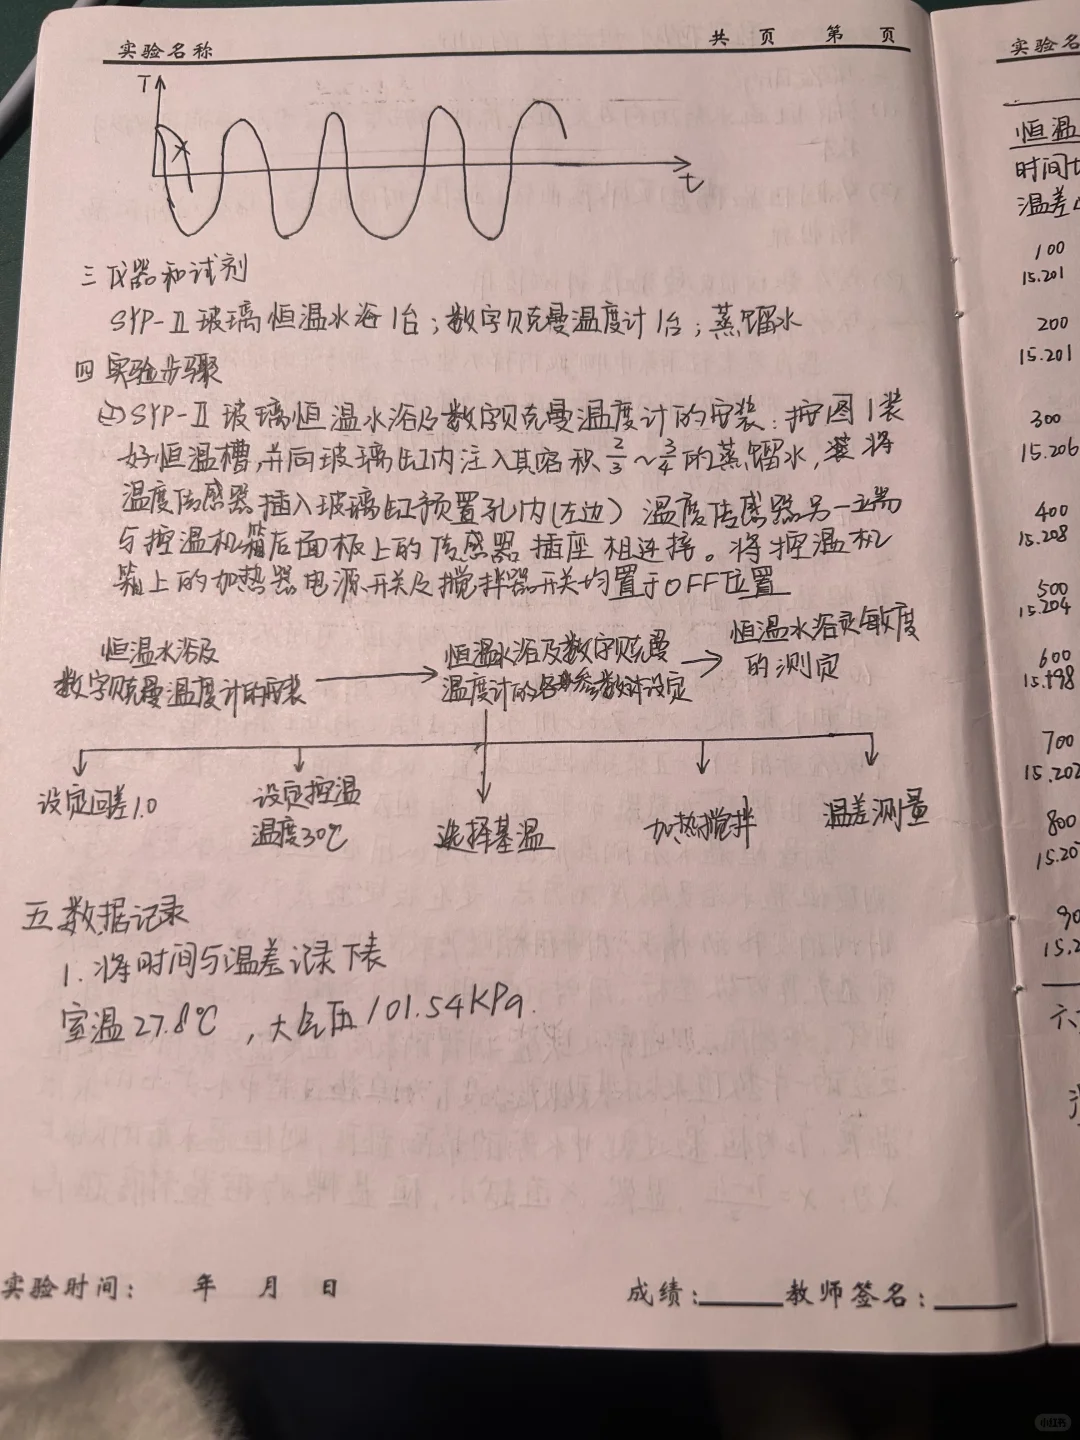 实验名称 共 页 第 页
T
t
三 仪器和试剂
SYP-Ⅱ玻璃恒温水浴1台;数字贝克曼温度计1台;蒸馏水
四 实验步骤
SYP-Ⅱ玻璃恒温水浴及数字贝克曼温度计的安装:按图1装
好恒温槽,并向玻璃缸内注入其容积2/3~3/4的蒸馏水,将
温度传感器插入玻璃缸预置孔内(左边)温度传感器另一端
与控温机箱后面板上的传感器插座相连接。将控温机
箱上的加热器电源开关及搅拌器开关均置于OFF位置
恒温水浴及
数字贝克曼温度计的安装
恒温水浴及数字贝克曼
温度计的各参数设定
恒温水浴灵敏度
的测定
设定回差1.0
设定控温
温度30℃
选择基温
加热搅拌
温差测量
五 数据记录
1.将时间与温差记录下表
室温27.8℃,大气压101.54KPa.
实验时间: 年 月 日 成绩: 教师签名:
实验名
恒温
时间t
温差
100
15.201
200
15.201
300
15.206
400
15.208
500
15.204
600
15.198
700
15.202
800
15.20
90
15.2
六
小红书